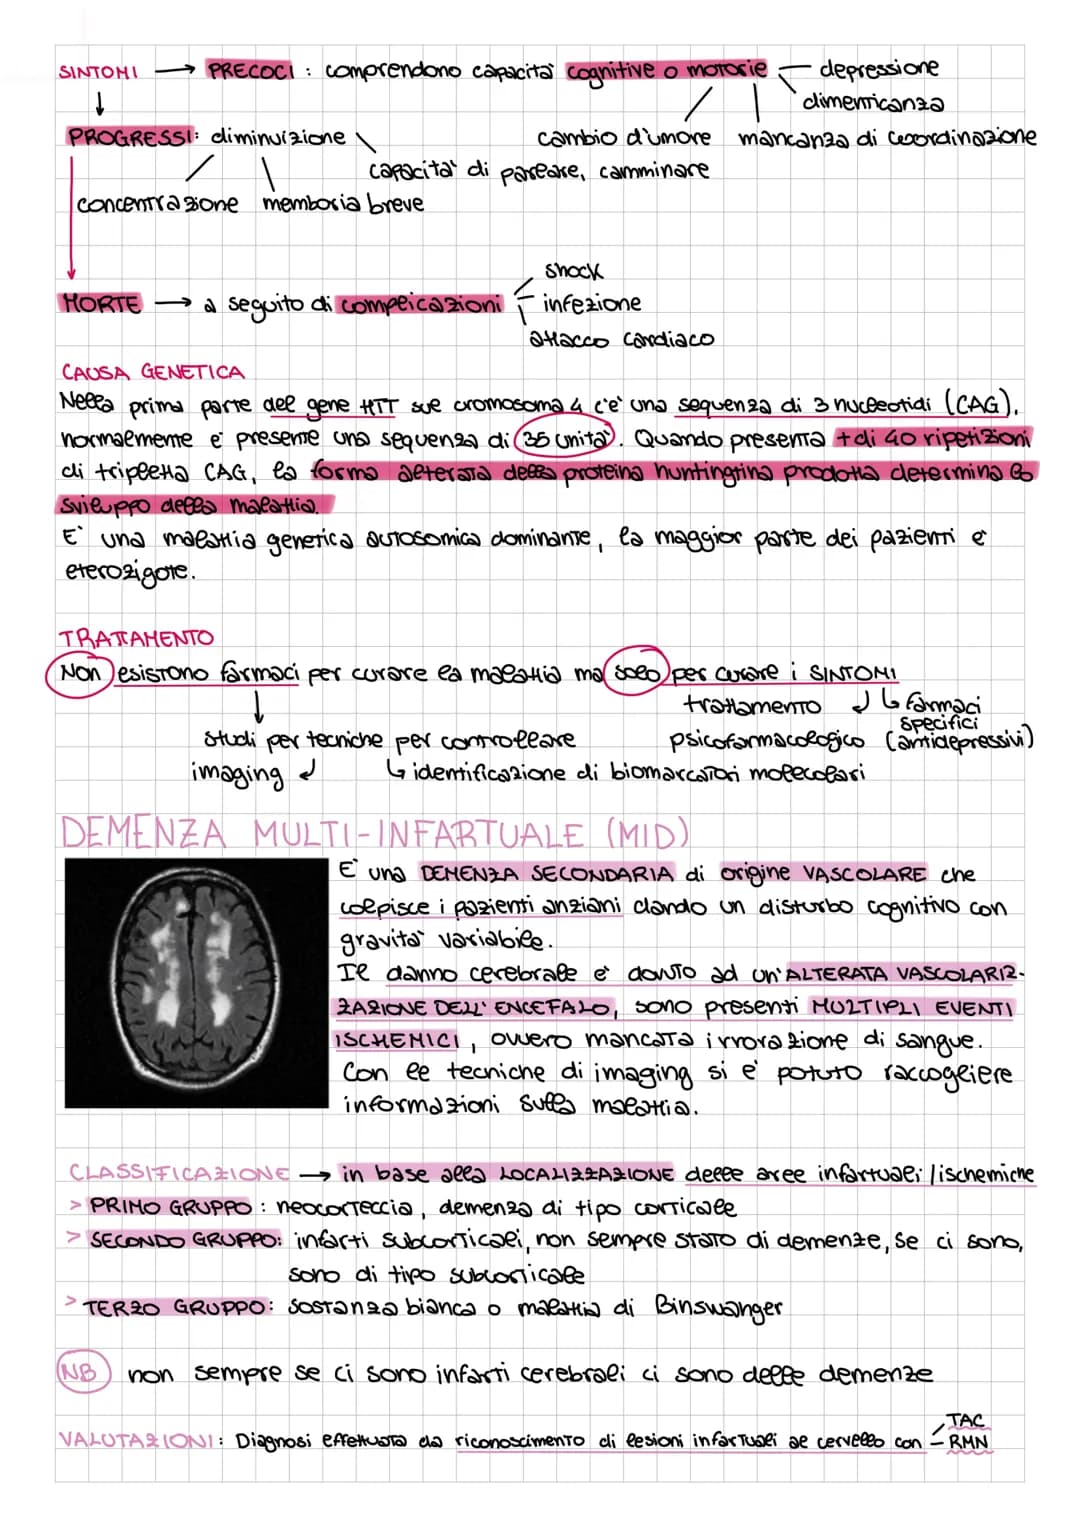 SINTOMI → PRECOCI : comprendono capacità cognitive o motorie — depressione
dimenticanza
PROGRESSI: diminuizione cambio d'umore mancanza di coordinazione
capacità di parlare, camminare
concentrazione memboria breve
shock
MORTE → a seguito di complicazioni — infezione
attacco cardiaco
CAUSA GENETICA
Nella prima parte del gene HTT sul cromosoma 4 c'e' una sequenza di 3 nucleotidi (CAG),
normalmente e' presente una sequenza di 35 unità. Quando presenta + di 40 ripetizioni
di tripletta CAG, la forma alterata della proteina huntingtina prodotta determina lo
sviluppo della malattia.
E' una malattia genetica autosomica dominante, la maggior parte dei pazienti e'
eterozigote.
TRATTAMENTO
Non esistono farmaci per curare la malattia ma solo per curare i SINTOMI
trattamento ↲ ↳ farmaci
specifici
studi per tecniche per controllare psicofarmacologico (antidepressivi)
imaging ↲ ↳ identificazione di biomarcatori molecolari
DEMENZA MULTI-INFARTUALE (MID)
E' una DEMENZA SECONDARIA di origine VASCOLARE che
colpisce i pazienti anziani dando un disturbo cognitivo con
gravità variabile.
Il danno cerebrale e' dovuto ad un'ALTERATA VASCOLARIZ-
ZAZIONE DELL'ENCEFALO, sono presenti MULTIPLI EVENTI
ISCHEMICI, ovvero mancata irrorazione di sangue.
Con le tecniche di imaging si e' potuto raccogliere
informazioni sulla malattia.
CLASSIFICAZIONE → in base alla LOCALIZZAZIONE delle aree infartuali/ischemiche
> PRIMO GRUPPO : neocorteccia, demenza di tipo corticale
> SECONDO GRUPPO: infarti subcorticali, non sempre stato di demenze, se ci sono,
sono di tipo subcorticale
> TERZO GRUPPO: sostanza bianca o malattia di Binswanger
NB non sempre se ci sono infarti cerebrali ci sono delle demenze
TAC
VALUTAZIONI: Diagnosi effettuata da riconoscimento di lesioni infartuali al cervello con — RMN